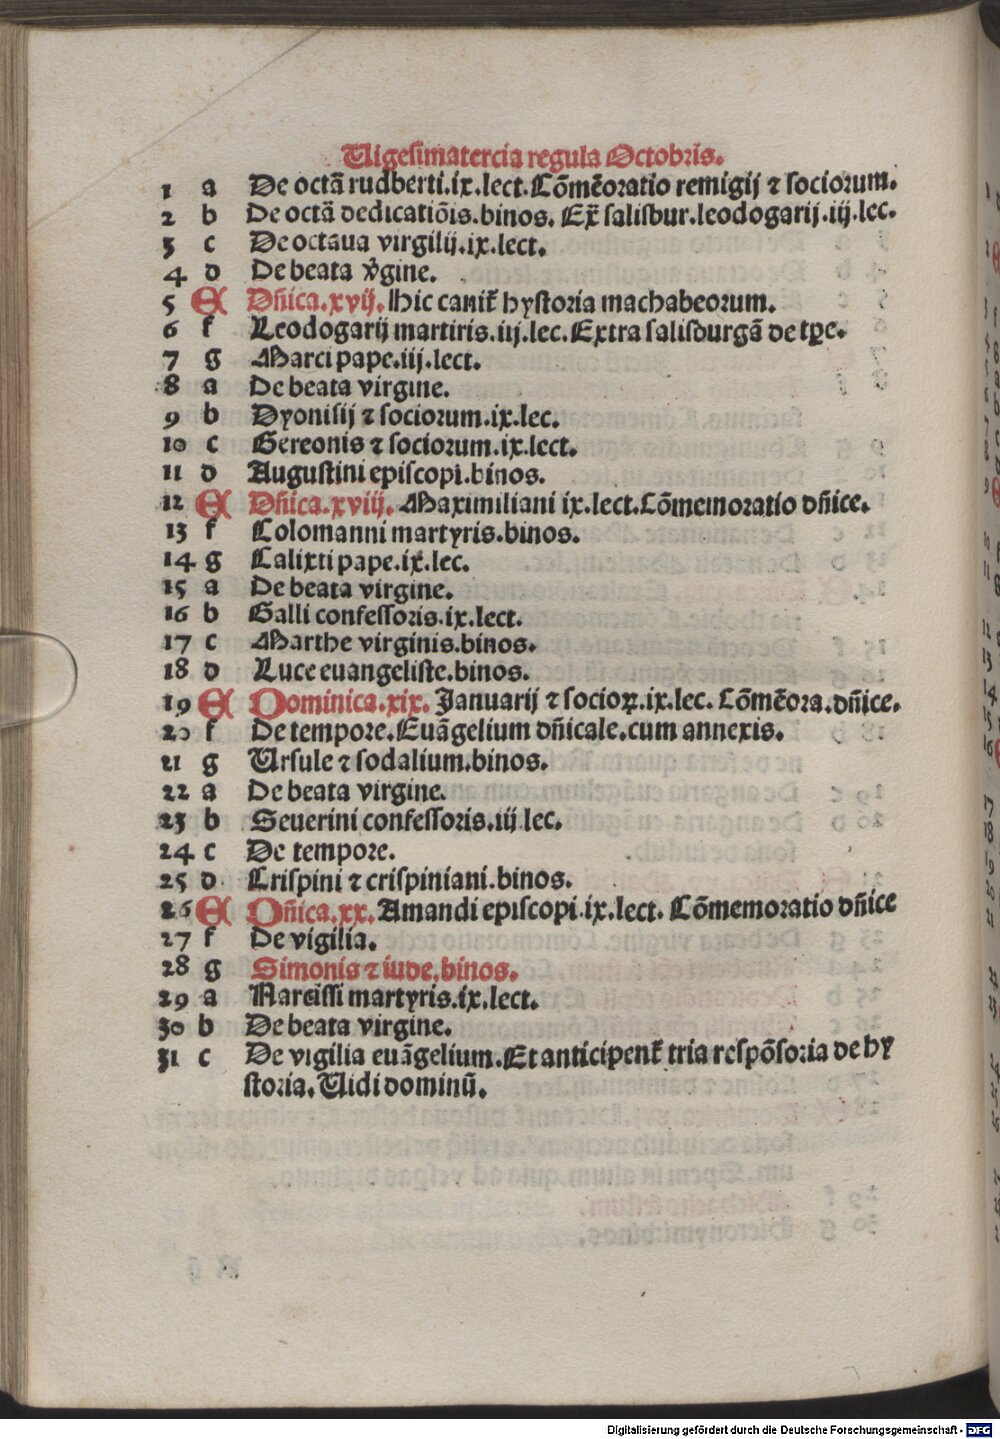 Uigesimatercia regula Octobris.
1 a De octā rudberti.ix.lect.Cōmēoratio remigij ⁊ sociorum.
2 b De octā dedicatiōis.binos. Ex̄ salisbur.leodogarij.iij.lec.
3 c De octaua virgilij.ix.lect.
4 d De beata v̄gine.
5 E Dn̄ica.xvij. Hic canit᷑ hystoria machabeorum.
6 f Leodogarij martiris.iij.lec.Extra salisburgā de tꝑe.
7 g Marci pape.iij.lect.
8 a De beata virgine.
9 b Dyonisij ⁊ sociorum.ix.lec.
10 c Gereonis ⁊ sociorum.ix.lect.
11 d Augustini episcopi.binos.
12 E Dn̄ica.xviij. Maximiliani ix.lect.Cōmemoratio dn̄ice.
13 f Colomanni martyris.binos.
14 g Calixti pape.ix.lec.
15 a De beata virgine.
16 b Galli confessoris.ix.lect.
17 c Marthe virginis.binos.
18 d Luce euangeliste.binos.
19 E Dominica.xix. Januarij ⁊ socioꝝ.ix.lec. Cōmēora.dn̄ice.
20 f De tempore.Euāgelium dn̄icale.cum annexis.
21 g Ursule ⁊ sodalium.binos.
22 a De beata virgine.
23 b Seuerini confessoris.iij lec.
24 c De tempore.
25 d Crispini ⁊ crispiniani.binos.
26 E Dn̄ica.xx. Amandi episcopi.ix.lect. Cōmemoratio dn̄ice
27 f De vigilia.
28 g Simonis ⁊ iude.binos.
29 a Narcissi martyris.ix.lect.
30 b De beata virgine.
31 c De vigilia euāgelium.Et anticipent᷑ tria respōsoria de hy
storia.Uidi dominū.
Digitalisierung gefördert durch die Deutsche Forschungsgemeinschaft - DFG